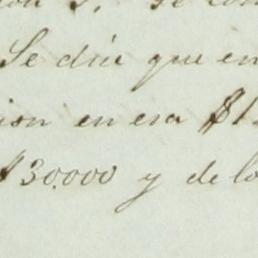 Se dice que en
ion en esa $1
$30.000 y de lo